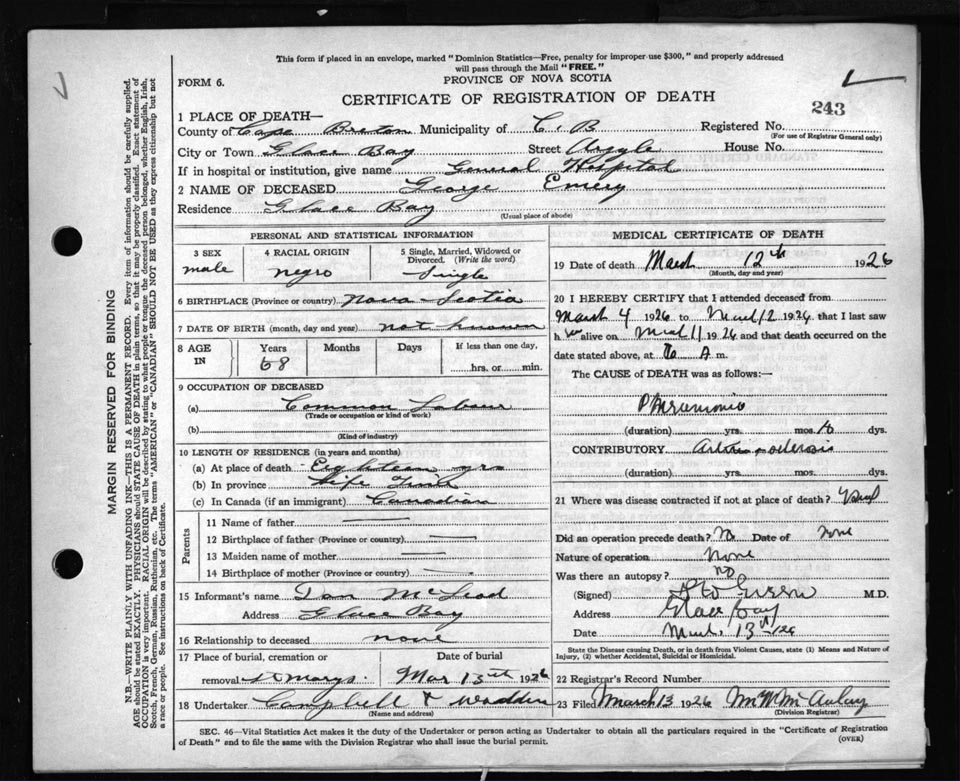 This form if placed in an envelope, marked "Dominion Statistics—Free, penalty for improper use $300," and properly addressed
will pass through the Mail "FREE."
FORM 6.
PROVINCE OF NOVA SCOTIA
CERTIFICATE OF REGISTRATION OF DEATH
243
1 PLACE OF DEATH—
County of Cape Breton Municipality of C. B Registered No.
(For use of Registrar General only)
City or Town Glace Bay Street Argyle House No.
If in hospital or institution, give name General Hospital
2 NAME OF DECEASED George Emery
Residence Glace Bay
(Usual place of abode)
PERSONAL AND STATISTICAL INFORMATION
3 SEX
male
4 RACIAL ORIGIN
negro
5 Single, Married, Widowed or
Divorced. (Write the word)
Single
6 BIRTHPLACE (Province or country) Nova Scotia
7 DATE OF BIRTH (month, day and year) not known
8 AGE
IN
Years
68
Months
Days
If less than one day,
hrs. or min.
9 OCCUPATION OF DECEASED
(a) Common Labour
(Trade or occupation or kind of work)
(b)
(Kind of industry)
10 LENGTH OF RESIDENCE (in years and months)
(a) At place of death Eighteen yrs
(b) In province Life Time
(c) In Canada (if an immigrant) Canadian
Parents
11 Name of father —
12 Birthplace of father (Province or country) —
13 Maiden name of mother —
14 Birthplace of mother (Province or country) —
15 Informant's name Dan McLeod
Address Glace Bay
16 Relationship to deceased none
17 Place of burial, cremation or
removal St Marys.
Date of burial
Mar 13th 1926
18 Undertaker Campbell & Wadden
(Name and address)
MEDICAL CERTIFICATE OF DEATH
19 Date of death March 12th 1926
(Month, day and year)
20 I HEREBY CERTIFY that I attended deceased from
March 4 1926 to March 12 1926 that I last saw
h im alive on March 11 1926 and that death occurred on the
date stated above, at A m.
The CAUSE of DEATH was as follows:—
Pneumonia
(duration) yrs. mos. 10 dys.
CONTRIBUTORY Arteriosclerosis
(duration) yrs. mos. dys.
21 Where was disease contracted if not at place of death?
Did an operation precede death? No Date of None
Nature of operation None
Was there an autopsy? no
(Signed) M.D.
Address Glace Bay
Date March 13th 26
State the Disease causing Death, or in death from Violent Causes, state (1) Means and Nature of
Injury, (2) whether Accidental, Suicidal or Homicidal.
22 Registrar's Record Number
23 Filed March 13 1926 McAulay
(Division Registrar)
SEC. 46—Vital Statistics Act makes it the duty of the Undertaker or person acting as Undertaker to obtain all the particulars required in the "Certificate of Registration
of Death" and to file the same with the Division Registrar who shall issue the burial permit.
(OVER)
MARGIN RESERVED FOR BINDING
N.B.—WRITE PLAINLY WITH UNFADING INK—THIS IS A PERMANENT RECORD. Every item of information should be carefully supplied.
AGE should be stated EXACTLY. PHYSICIANS should STATE CAUSE OF DEATH in plain terms, so that it may be properly classified. Exact statement of
OCCUPATION is very important. RACIAL ORIGIN will be described by stating to what people or tongue the deceased person belonged, whether English, Irish,
Scotch, French, German, Russian, Ruthenian, etc. The terms "AMERICAN" or "CANADIAN" SHOULD NOT BE USED as they express citizenship but not
a race or people. See instructions on back of Certificate.